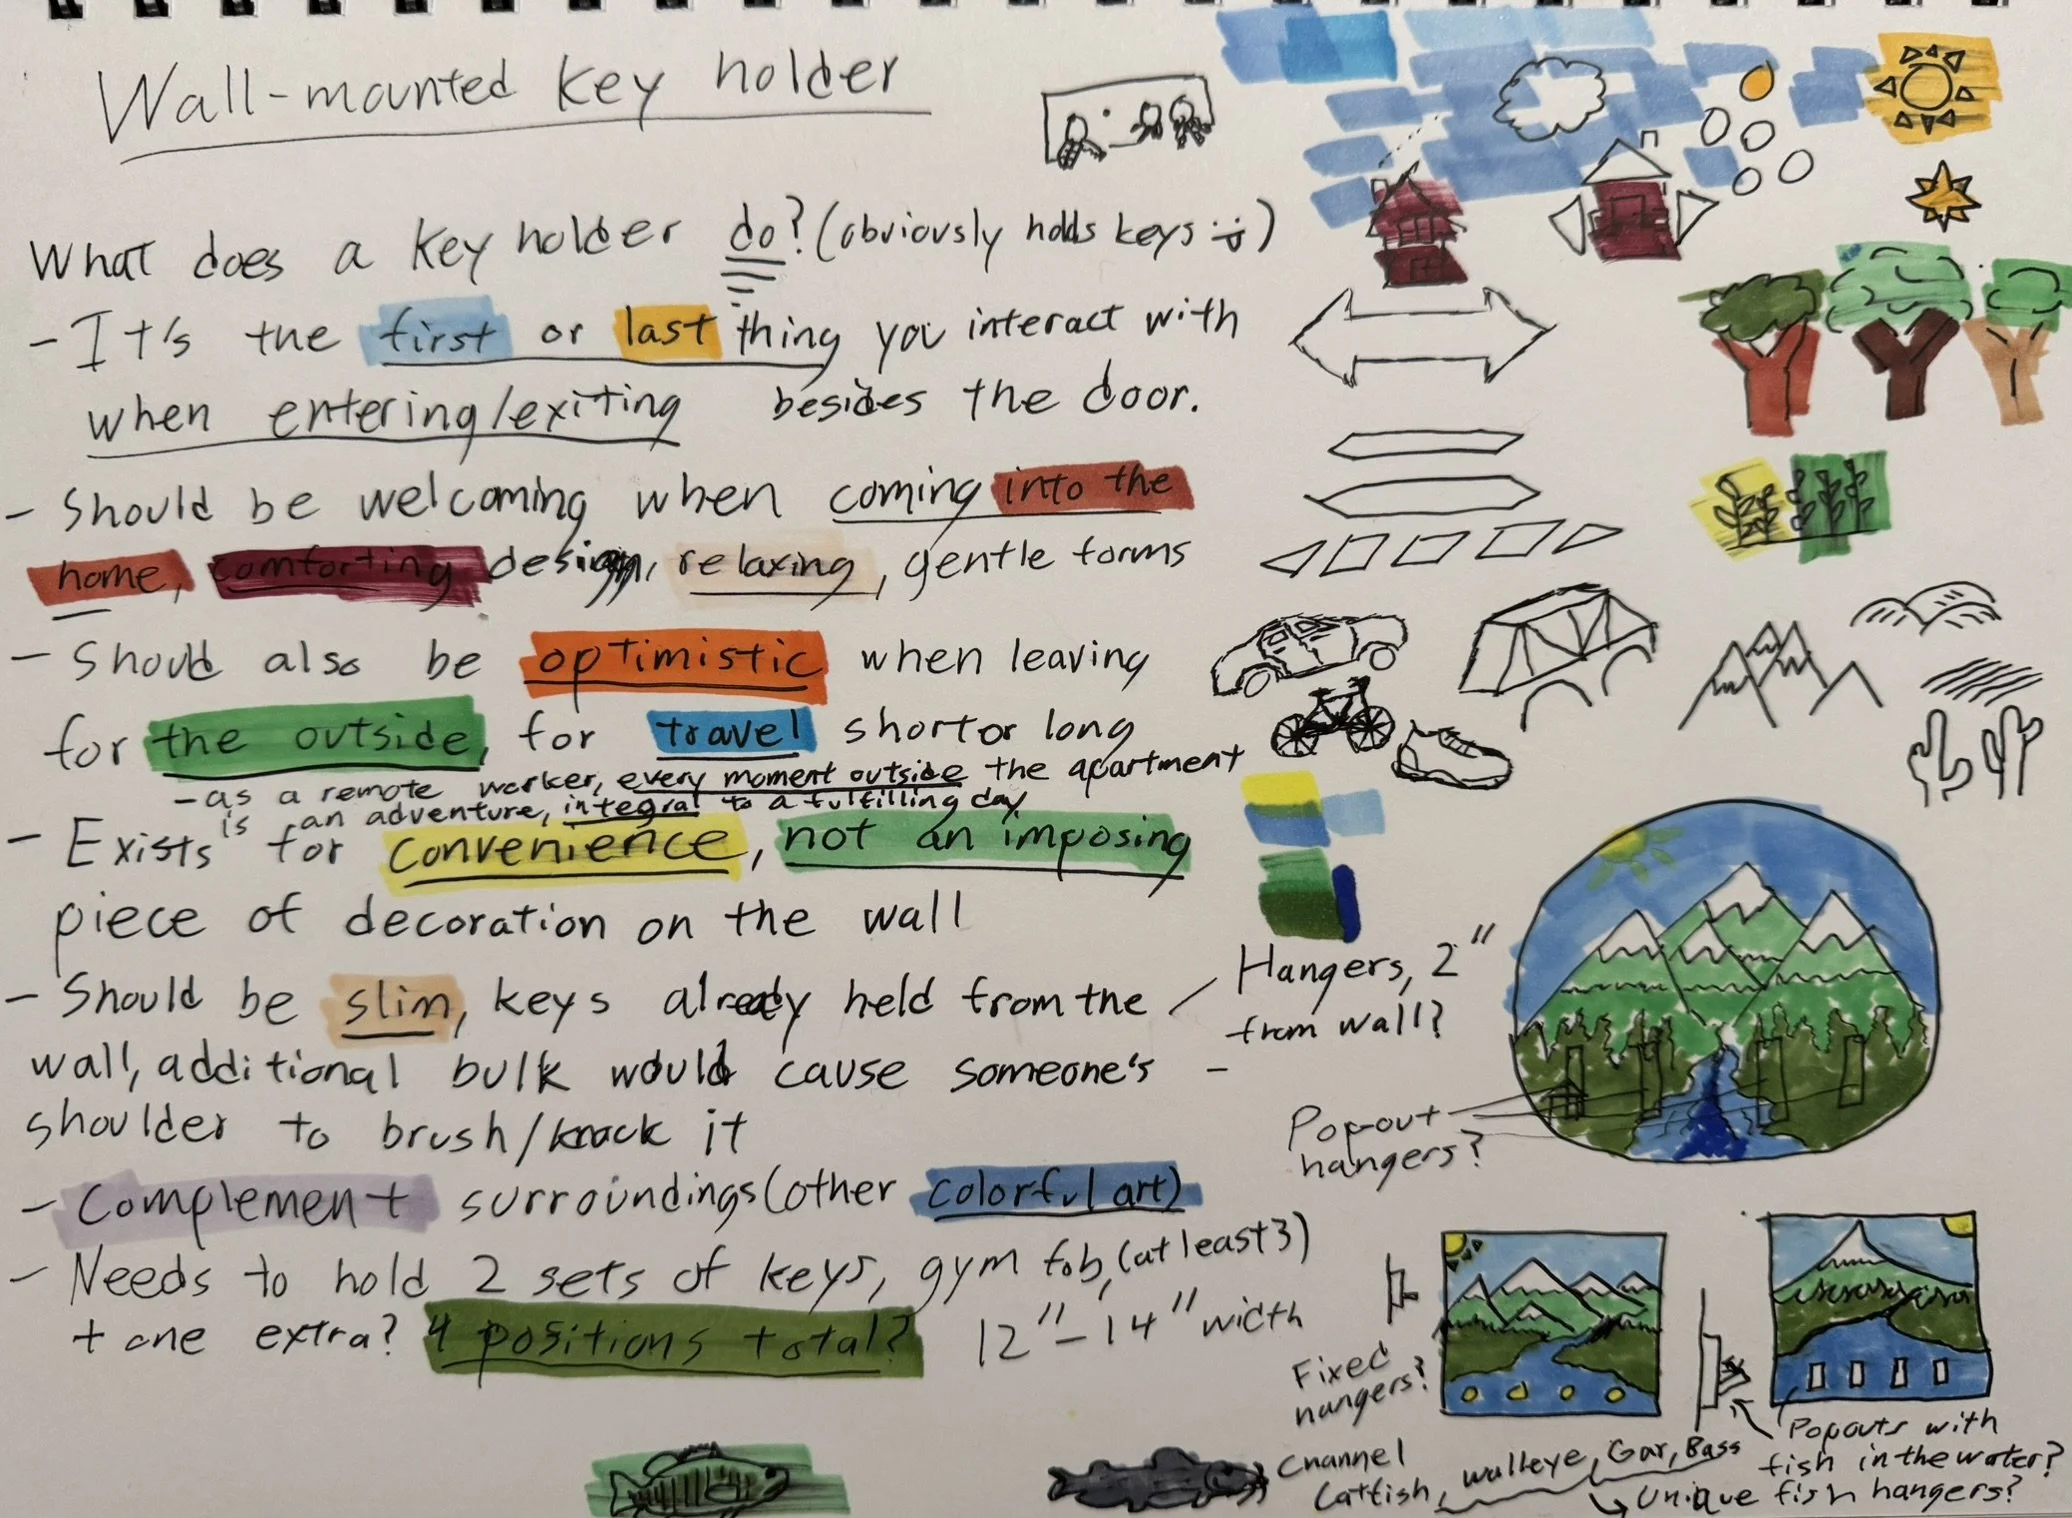 Wall-mounted key holder
What does a key holder do? (obviously holds keys :))
- It's the first or last thing you interact with
when entering/exiting besides the door.
- Should be welcoming when coming into the
home, comforting design, relaxing, gentle forms
- Should also be optimistic when leaving
for the outside, for travel short or long
- as a remote worker, every moment outside the apartment
is an adventure, integral to a fulfilling day
- Exists for convenience, not an imposing
piece of decoration on the wall
- Should be slim, keys already held from the
wall, additional bulk would cause someone's
shoulder to brush/knock it
- Complement surroundings (other colorful art)
- Needs to hold 2 sets of keys, gym fob, (at least 3)
+ one extra? 4 positions total? 12"-14" width
Hangers, 2"
from wall?
Pop-out
hangers?
Fixed
hangers?
Popouts with
fish in the water?
Channel
Catfish, walleye, Gar, Bass
Unique fish hangers?